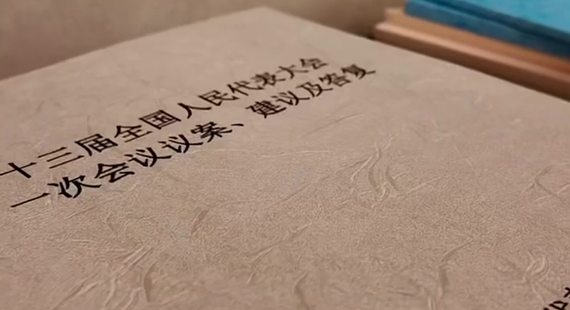 十三届全国人民代表大会
一次会议议案、建议及答复